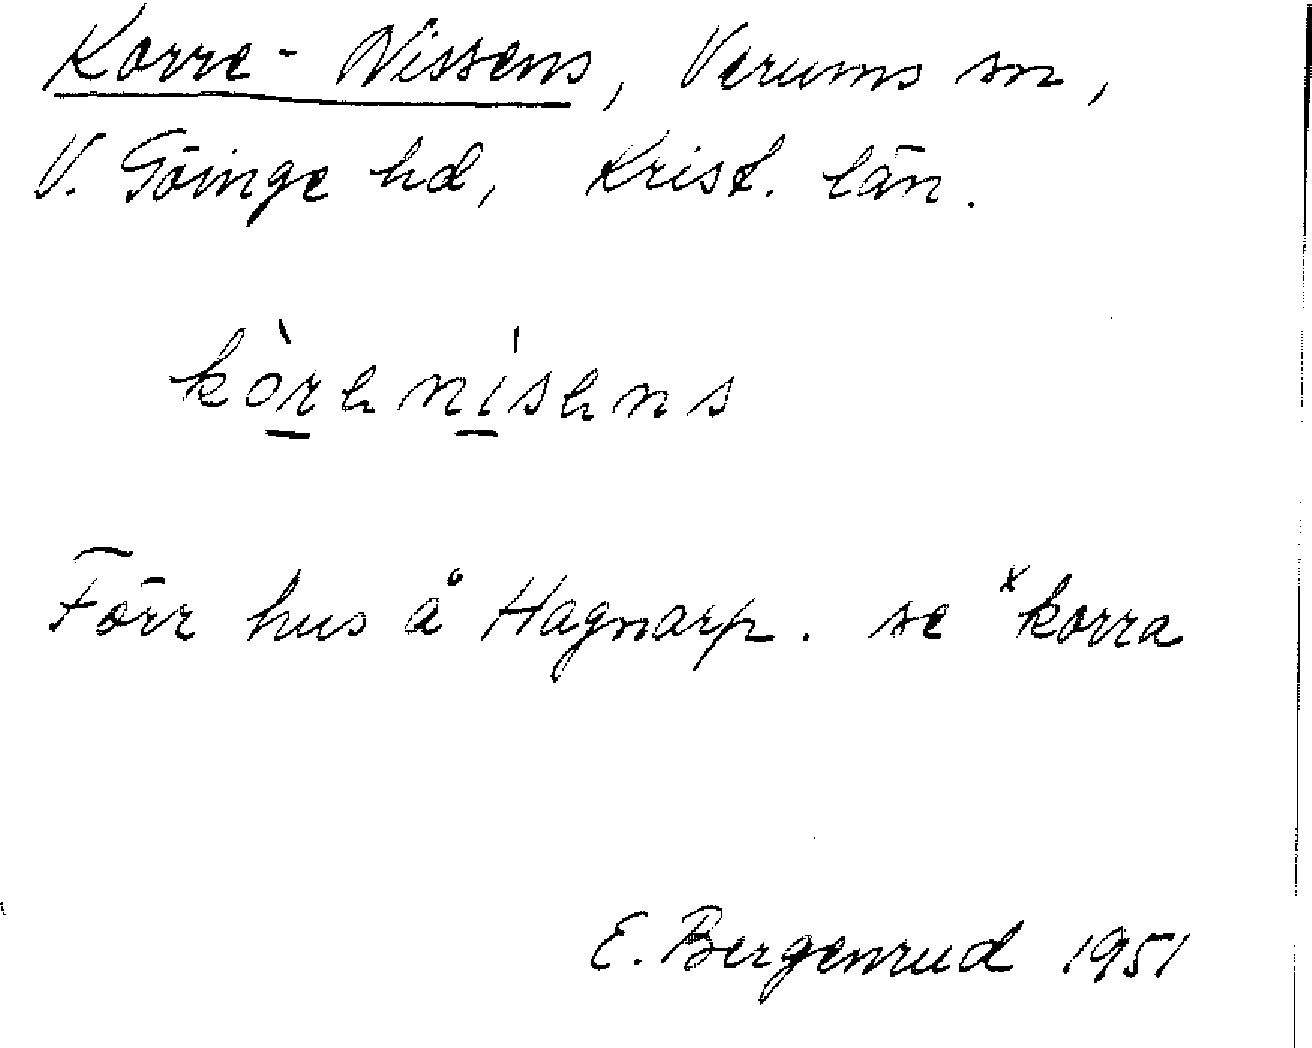 Korre-Nissens, Verums sn,
V. Göinge hd, Krist. län.
kòrenísens
Förr hus å Hagnarp. se ˣkorra
E. Bergenrud 1951